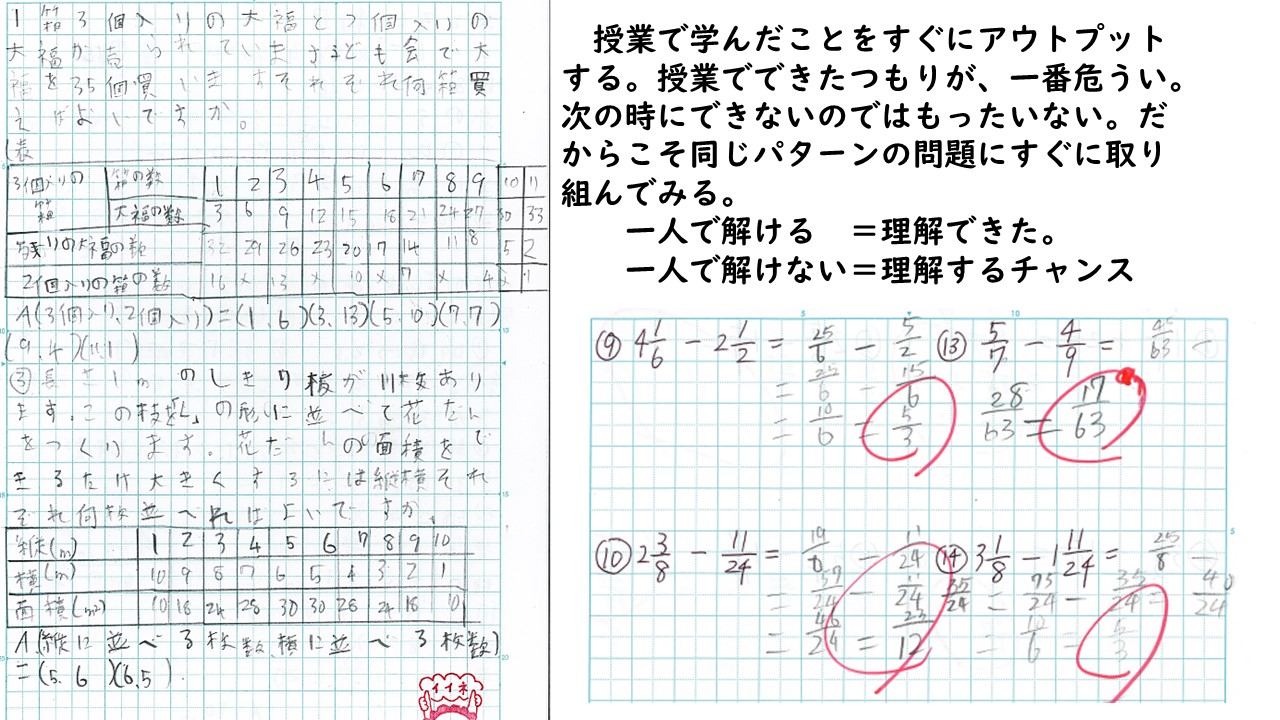 1箱3個入りの大福と2個入りの
大福が売られています子ども会で大
福を35個買いきますそれぞれ何箱買
えばよいですか。
(表
3個入りの箱 箱の数 1 2 3 4 5 6 7 8 9 10 11
大福の数 3 6 9 12 15 18 21 24 27 30 33
残りの大福の数 32 29 26 23 20 17 14 11 8 5 2
2個入りの箱の数 16 × 13 × 10 × 7 × 4 × 1
A(3個入り、2個入り)=(1,6)(3,13)(5,10)(7,7)
(9,4)(11,1)
③長さ1mのしきり板が11枚あり
ます。この枝を「L」の形に並べて花だん
をつくります。花だんの面積をで
きるだけ大きくするには縦横それ
ぞれ何枚並べればよいですか。
縦(m) 1 2 3 4 5 6 7 8 9 10
横(m) 10 9 8 7 6 5 4 3 2 1
面積(m²) 10 18 24 28 30 30 28 24 18 10
A(縦に並べる枚数、横に並べる枚数)
=(5,6)(6,5)
イイネ
授業で学んだことをすぐにアウトプット
する。授業でできたつもりが、一番危うい。
次の時にできないのではもったいない。だ
からこそ同じパターンの問題にすぐに取り
組んでみる。
一人で解ける ＝理解できた。
一人で解けない＝理解するチャンス
5 10
⑨ 4 1/6 − 2 1/2 = 25/6 − 5/2
= 25/6 − 15/6
= 10/6 = 5/3
⑬ 5/7 − 4/9 = 45/63 −
28/63 = 17/63
5
⑩ 2 3/8 − 11/24 = 19/8 − 11/24
= 57/24 − 11/24
= 46/24 = 23/12
⑭ 3 1/8 − 1 11/24 = 25/8 −
35/24 = 75/24 − 35/24 = 40/24
= 10/6 = 5/3